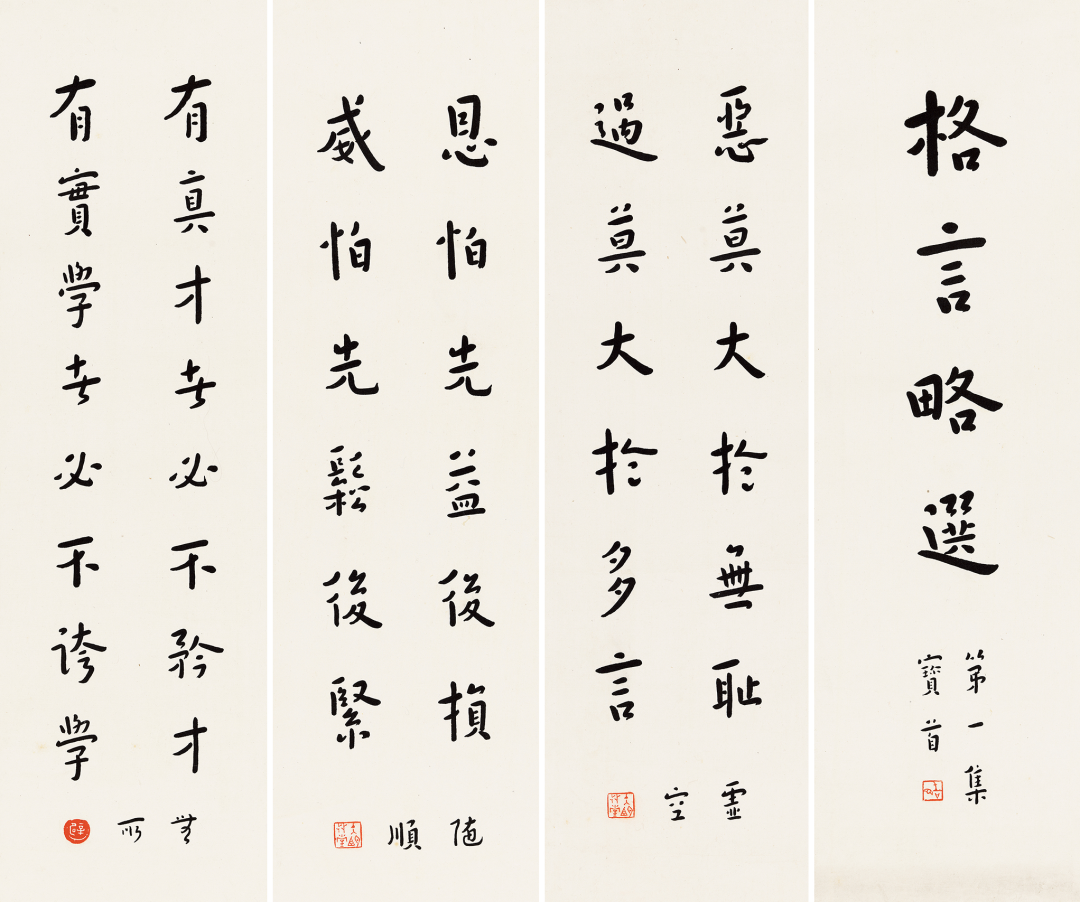 格言略選
第一集
寶首
惡莫大於無恥
過莫大於多言
虛
空
恩怕先益後損
威怕先鬆後緊
隨
順
有真才者必不矜才
有實學者必不誇學
無
所